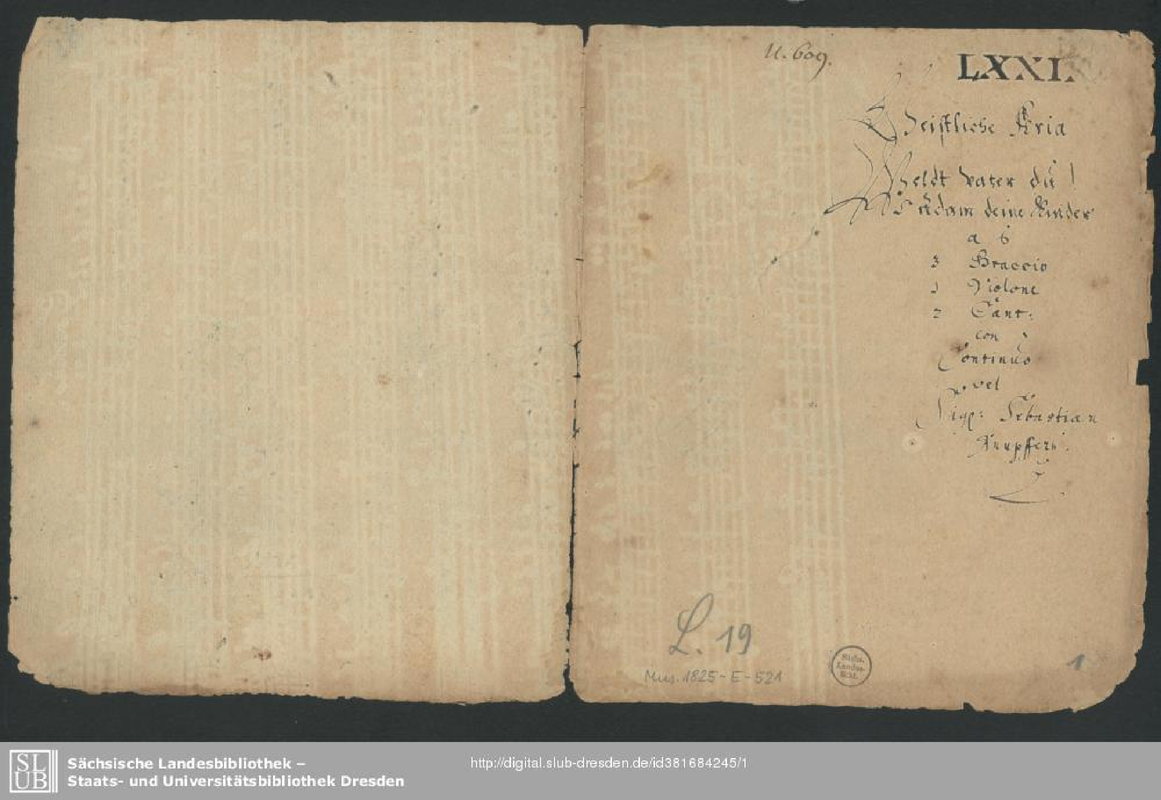 U. 609.
LXXI.
Geistliche Aria
Weldt vater dü!
Adam deine Kinder
a 6
3 Braccio
1 Violone
2 Cant:
con
Continuo
vel
Sigr: Sebastian
Knupfern.
L. 19
Mus. 1825-E-521
Sächs.
Landes-
Bibl.
1
SLUB
Sächsische Landesbibliothek –
Staats- und Universitätsbibliothek Dresden
http://digital.slub-dresden.de/id381684245/1